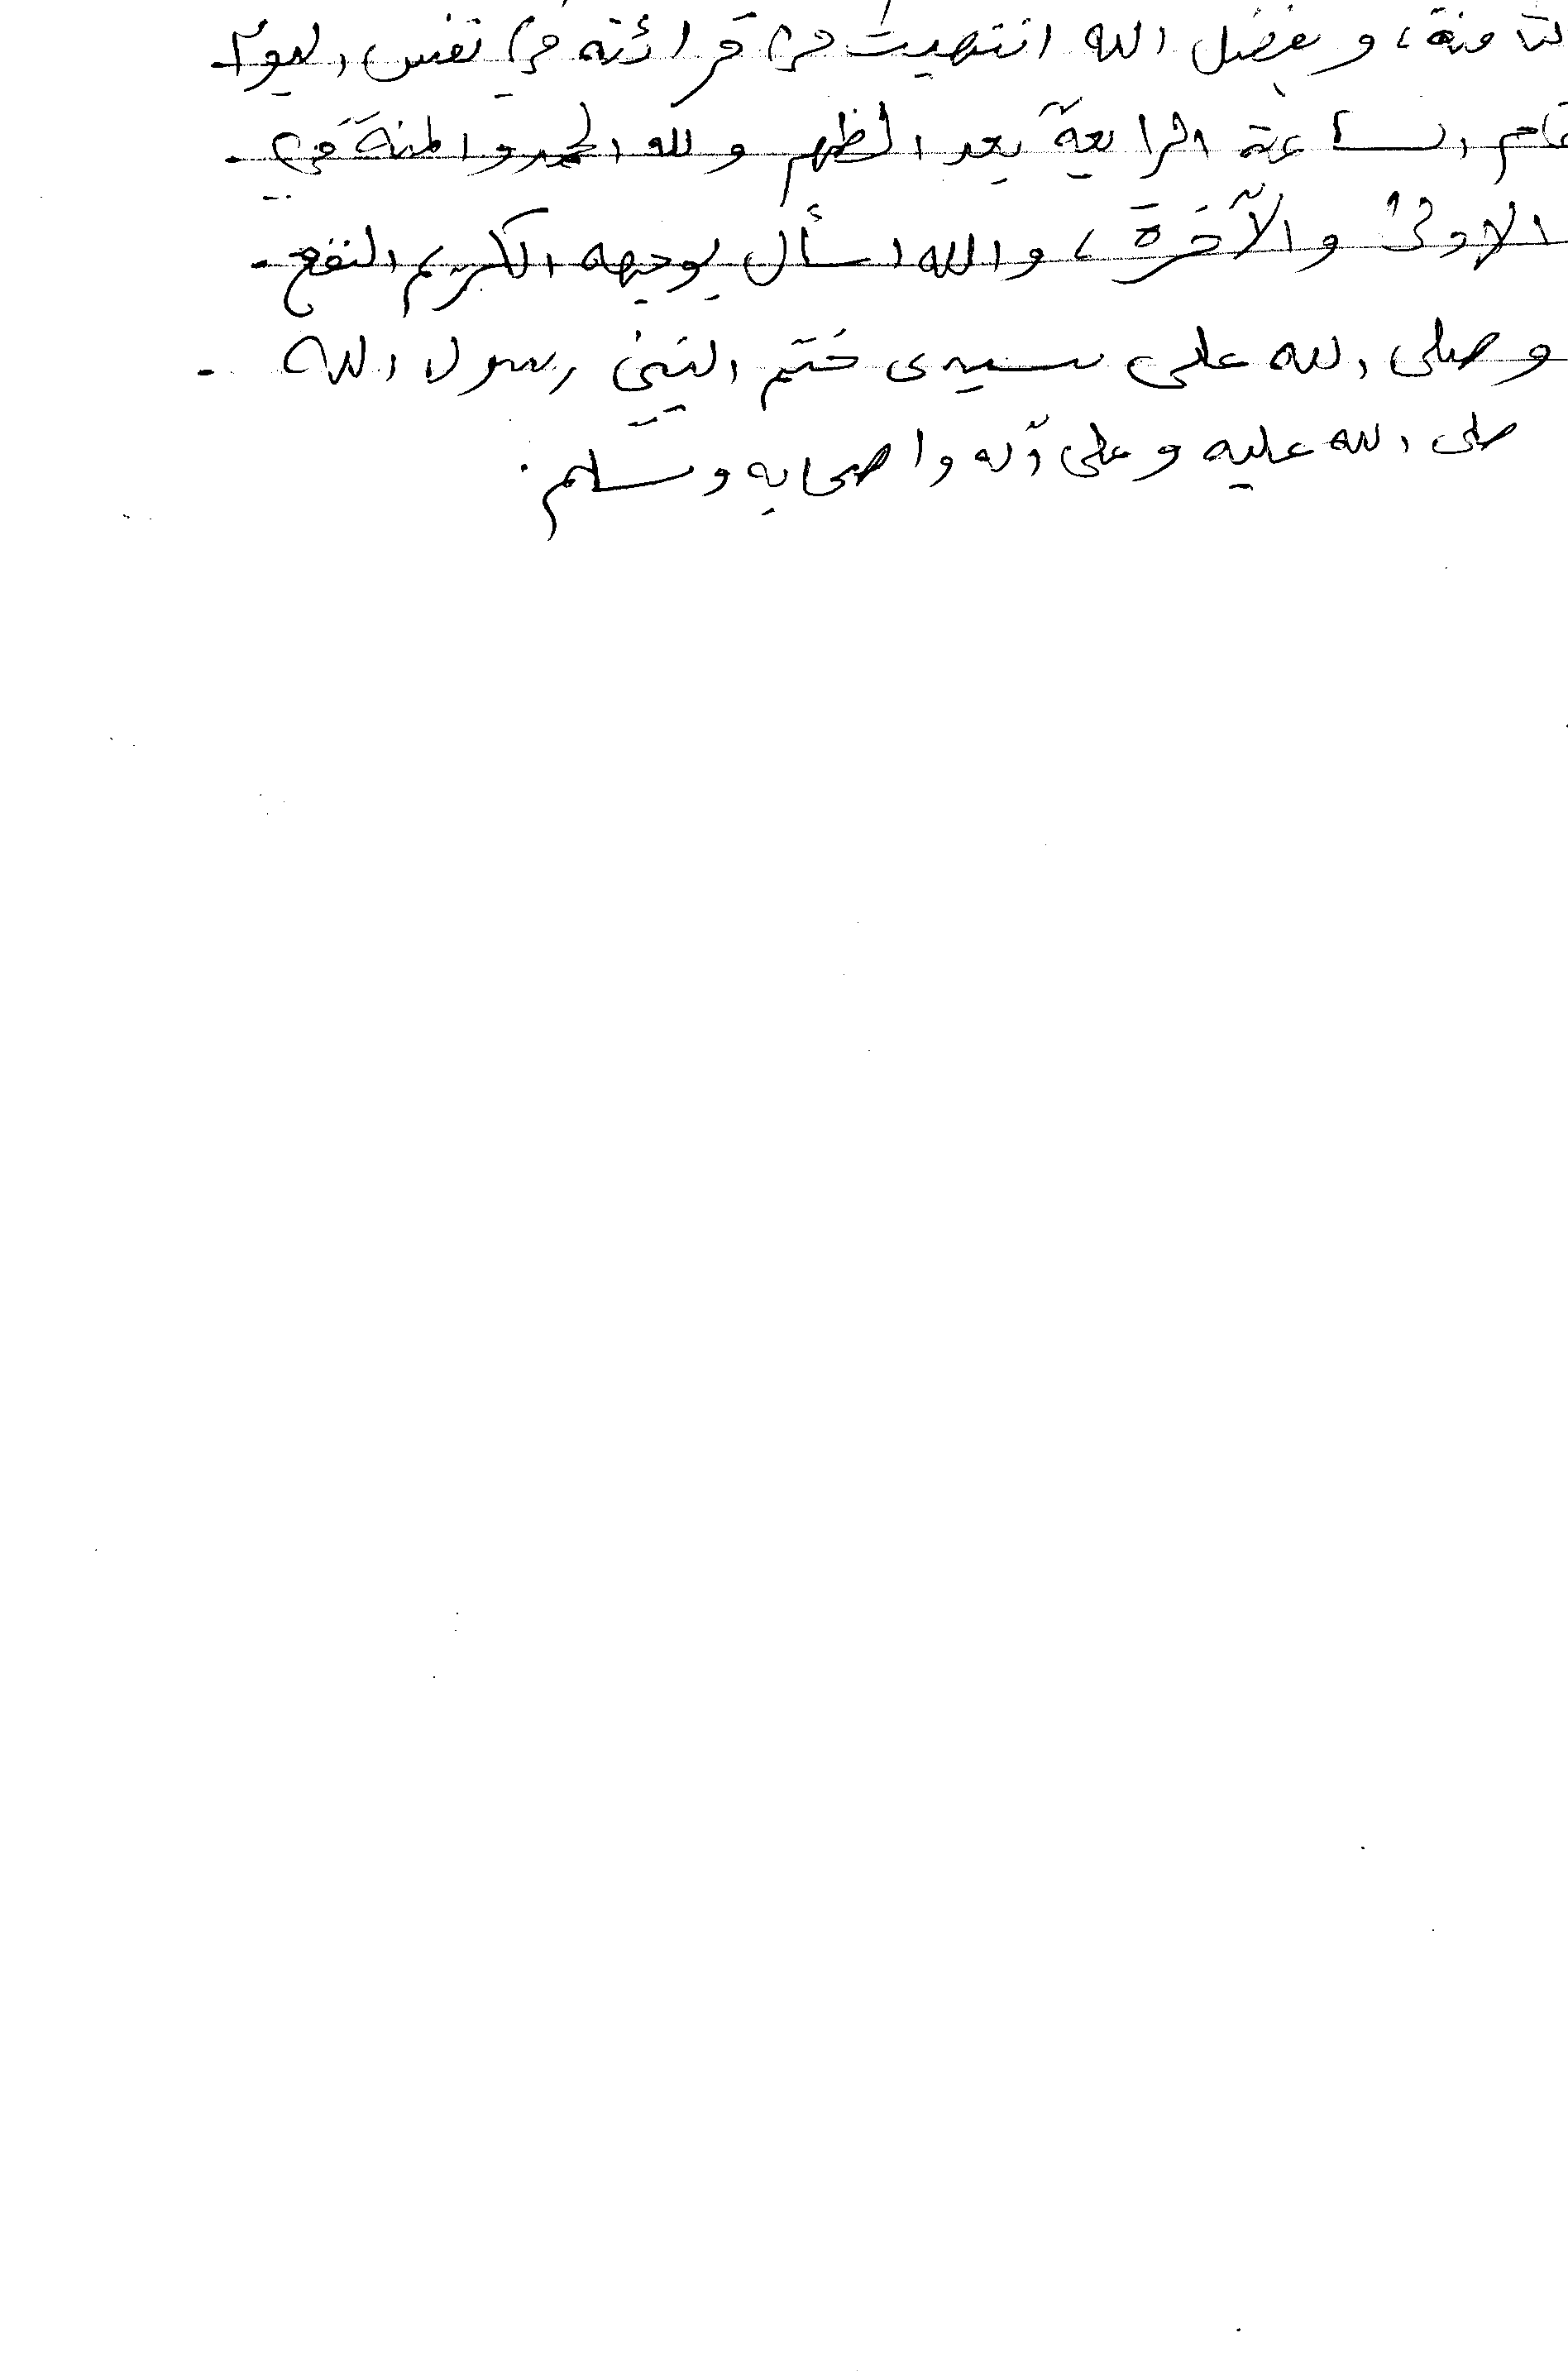 الثامنة، وبفضل الله انتهيت من قرائته في نفس اليوم
تمام الساعة الرابعة بعد الظهر ولله الحمد والمنة في
الاولى والآخرة، والله اسأل بوجهه الكريم النفع
وصلى الله على سيدى ختم النبيين رسول الله
صلى الله عليه وعلى آله واصحابه وسلم.